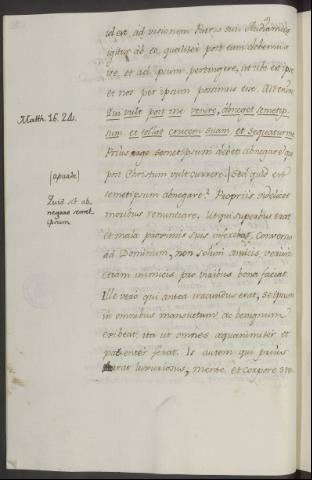 id est, ad visionem Patris sui. Audiamus
igitur ab eo, qualiter post eum debeamus
re, et ad ipsum pertingere, ut ubi est ipse
et nos per ipsum possimus esse. Ait enim
Matth. 16. 24.
Qui vult post me venire, abneget semetip-
sum et tollat crucem suam, et sequatur me
Prius semetipsum debet abnegare qui
(aparde)
post Christum vult currere. Sed quid est
Quid sit ab-
negare semet-
ipsum
semetipsum abnegare? Propriis videlicet
moribus renuntiare. Ut qui superbus erat
et mala proximis suis inferebat, conversus
ad Dominum, non solum amicis, verum
etiam inimicis pro viribus bona faciat.
Ille vero qui antea iracundus erat, se ipsum
in omnibus mansuetum ac benignum
exibeat, ita ut omnes aequanimiter et
patienter ferat. Is autem qui prius
erat luxuriosus, mente, et corpore sit